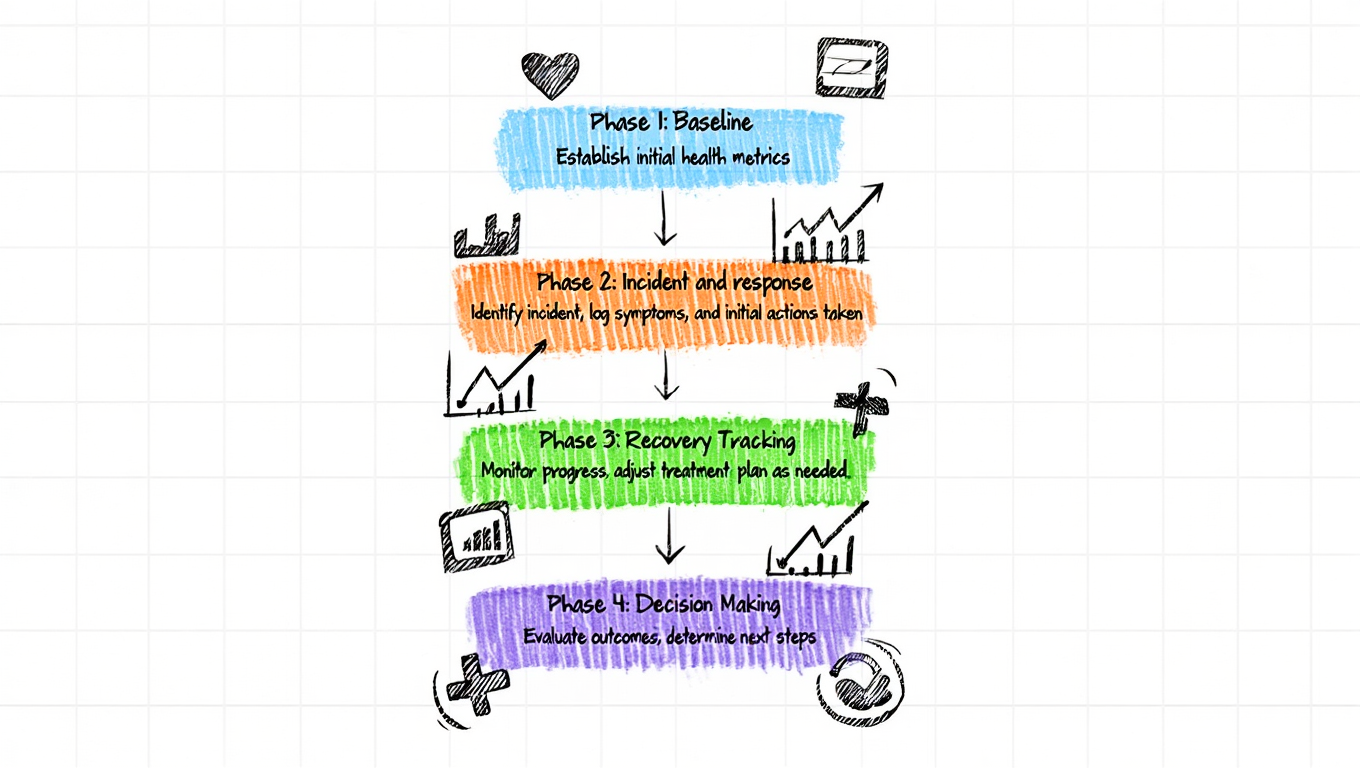 Phase 1: Baseline
Establish initial health metrics
Phase 2: Incident and response
Identify incident, log symptoms, and initial actions taken
Phase 3: Recovery Tracking
Monitor progress, adjust treatment plan as needed.
Phase 4: Decision Making
Evaluate outcomes, determine next steps